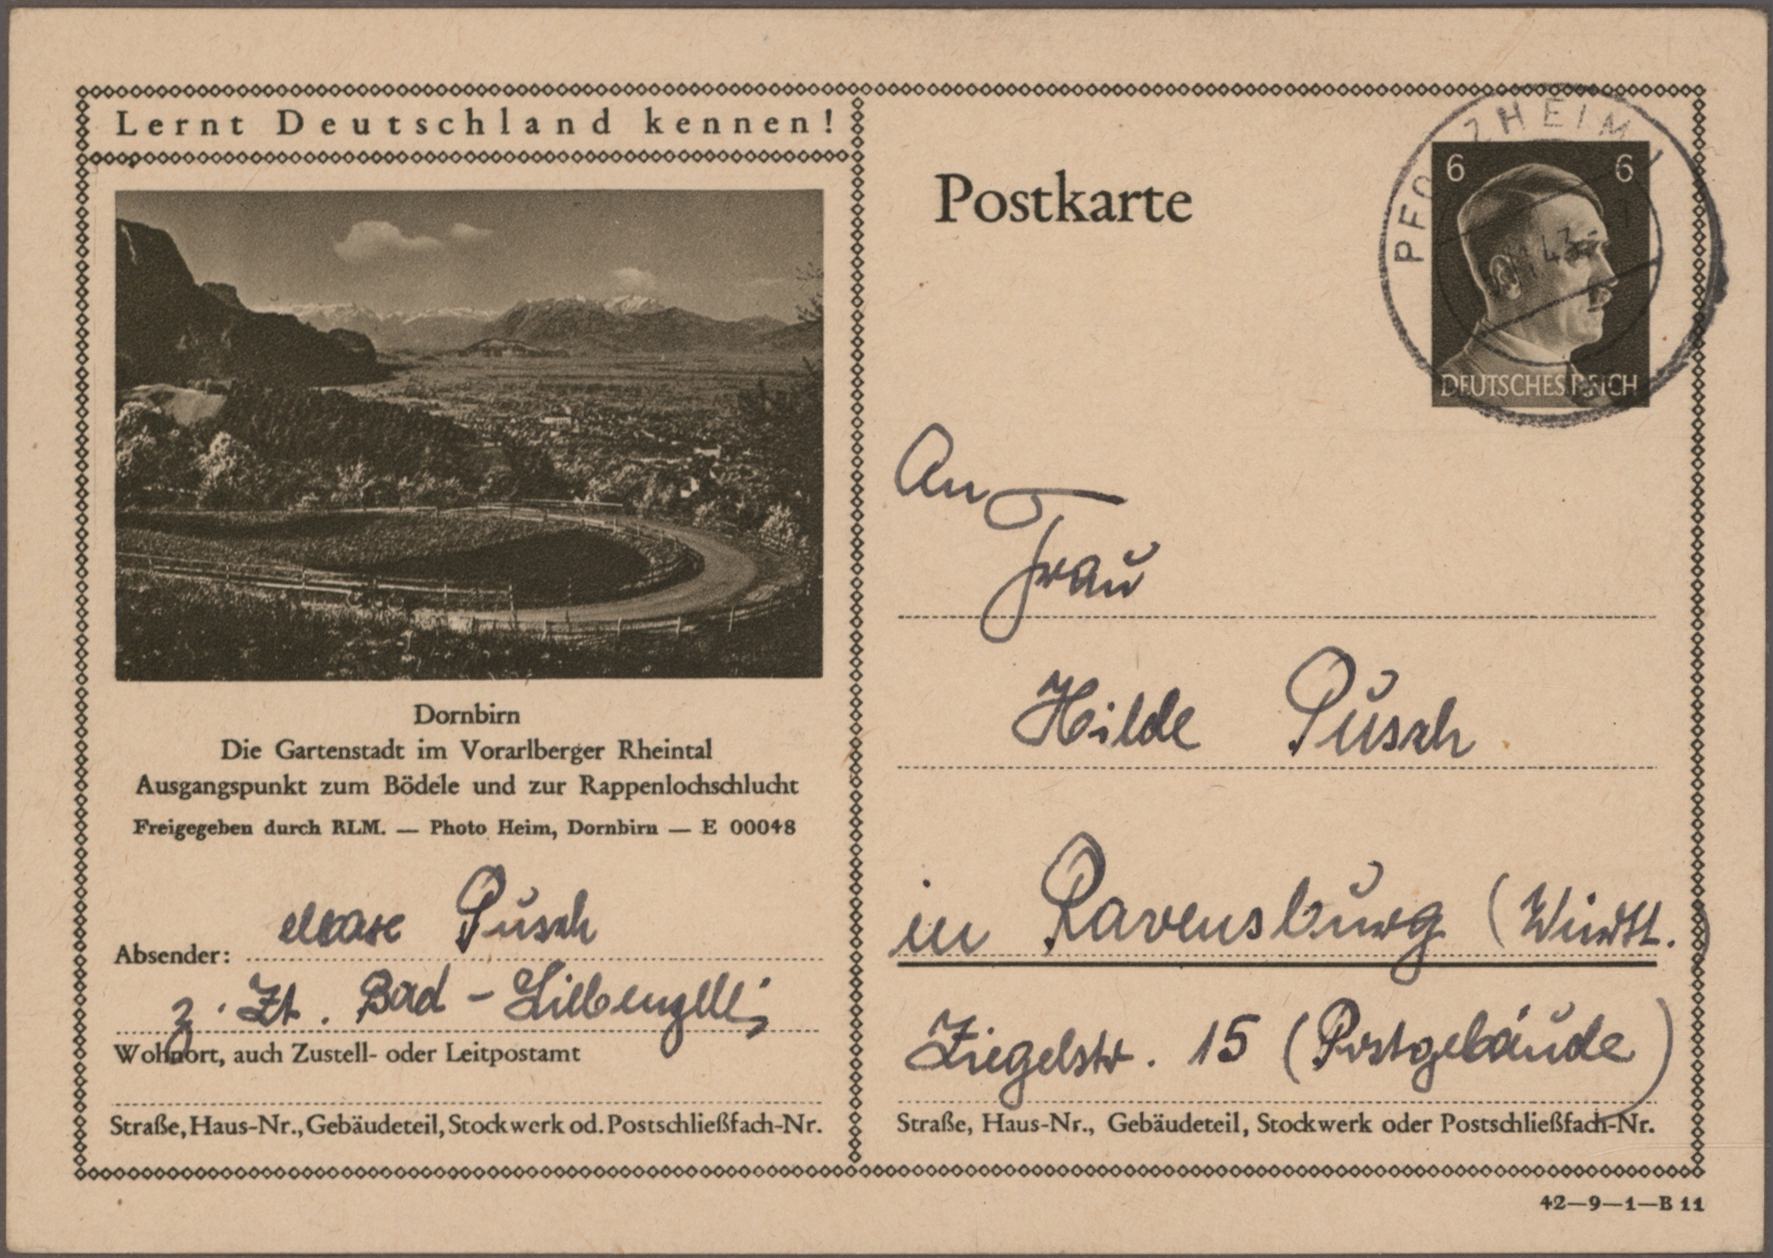 Lernt Deutschland kennen!
Dornbirn
Die Gartenstadt im Vorarlberger Rheintal
Ausgangspunkt zum Bödele und zur Rappenlochschlucht
Freigegeben durch RLM. — Photo Heim, Dornbirn — E 00048
Absender: Pusch
z. Zt. Bad-Liebenzell;
Wohnort, auch Zustell- oder Leitpostamt
Straße, Haus-Nr., Gebäudeteil, Stockwerk od. Postschließfach-Nr.
Postkarte
PFORZHEIM
43
6 6
DEUTSCHES REICH
An
Frau
Hilde Pusch
in Ravensburg (Württ.)
Ziegelstr. 15 (Postgebäude)
Straße, Haus-Nr., Gebäudeteil, Stockwerk oder Postschließfach-Nr.
42—9—1—B 11